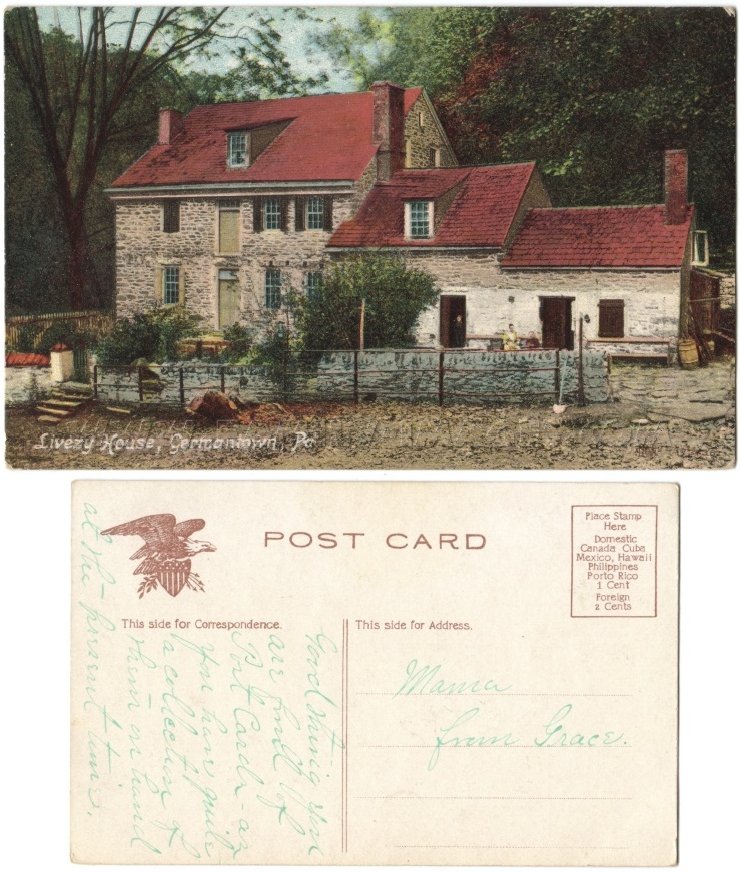 Livezy House, Germantown, Pa
POST CARD
Place Stamp
Here
Domestic
Canada Cuba
Mexico, Hawaii
Philippines
Porto Rico
1 Cent
Foreign
2 Cents
This side for Correspondence.
This side for Address.
Good thing you
are fond of
Post Cards - as
you have quite
a collection of
them on hand
at the present time.
Mama
from Grace.